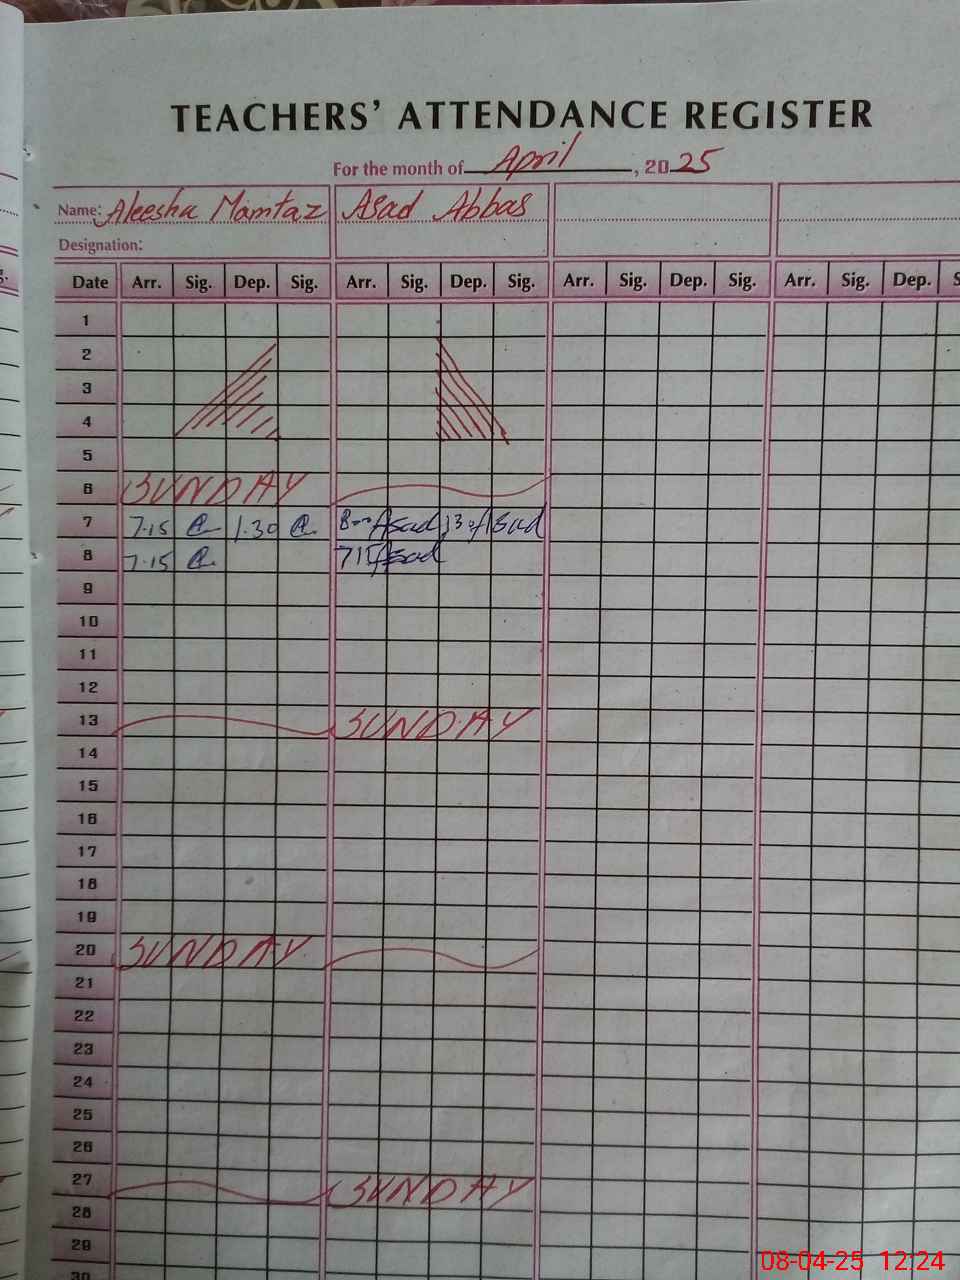 TEACHERS' ATTENDANCE REGISTER
For the month of April, 2025
Name: Aleesha Mamtaz Asad Abbas
Designation:
Date Arr. Sig. Dep. Sig. Arr. Sig. Dep. Sig. Arr. Sig. Dep. Sig. Arr. Sig. Dep.
1
2
3
4
5
6 SUNDAY
7 7.15 1.30 8.00 Asad 1.30 Asad
8 7.15 715 Asad
9
10
11
12
13 SUNDAY
14
15
16
17
18
19
20 SUNDAY
21
22
23
24
25
26
27 SUNDAY
28
29
30
08-04-25 12:24